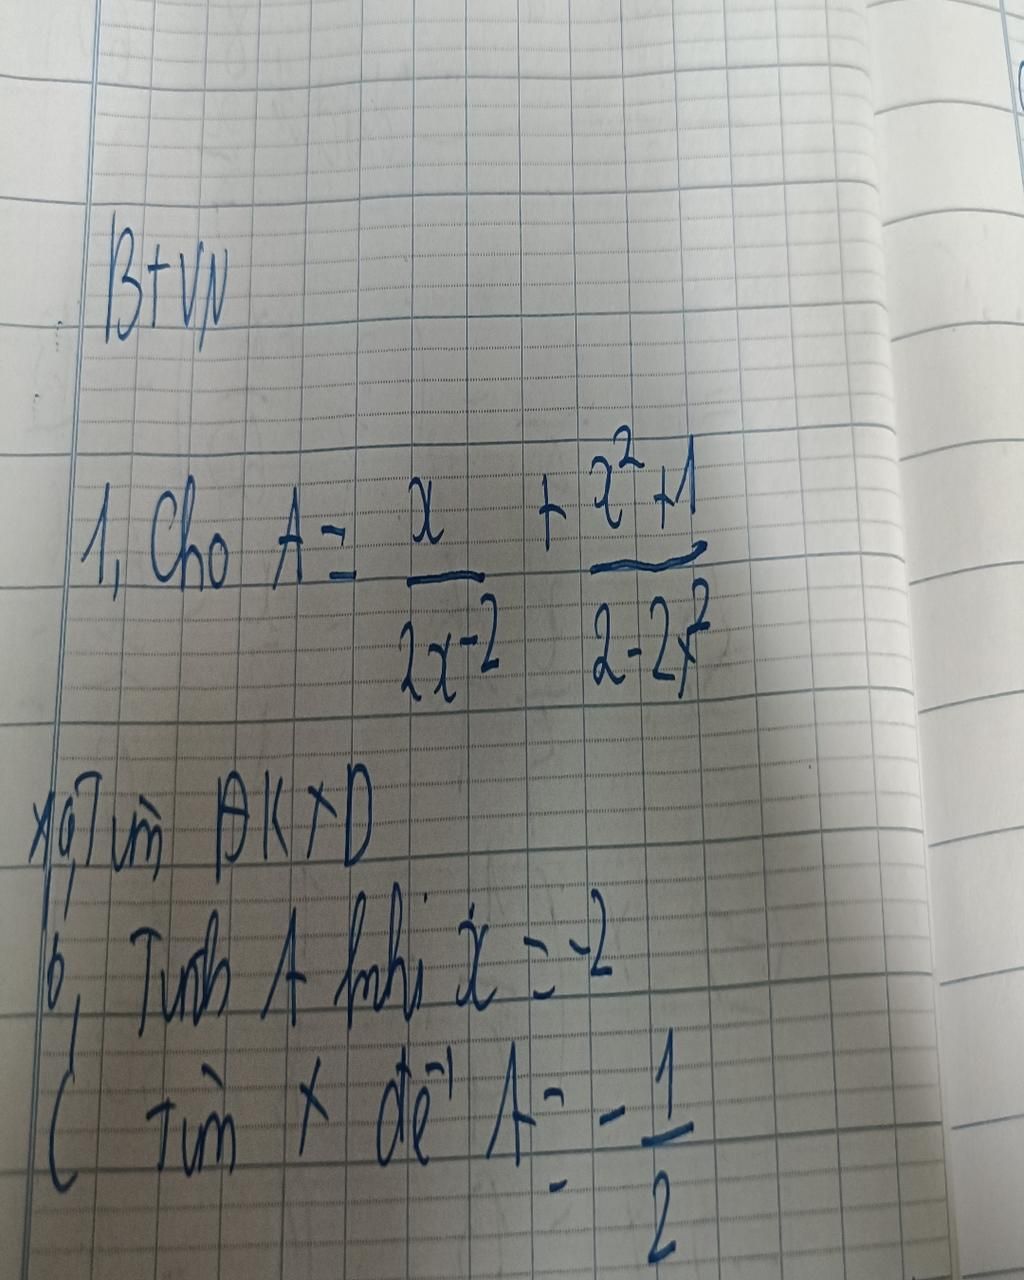 BTVN
1, Cho A = x/(2x-2) + (x²+1)/(2-2x²)
a, Tìm ĐKXĐ
b, Tính A khi x = -2
c, Tìm x để A = -1/2